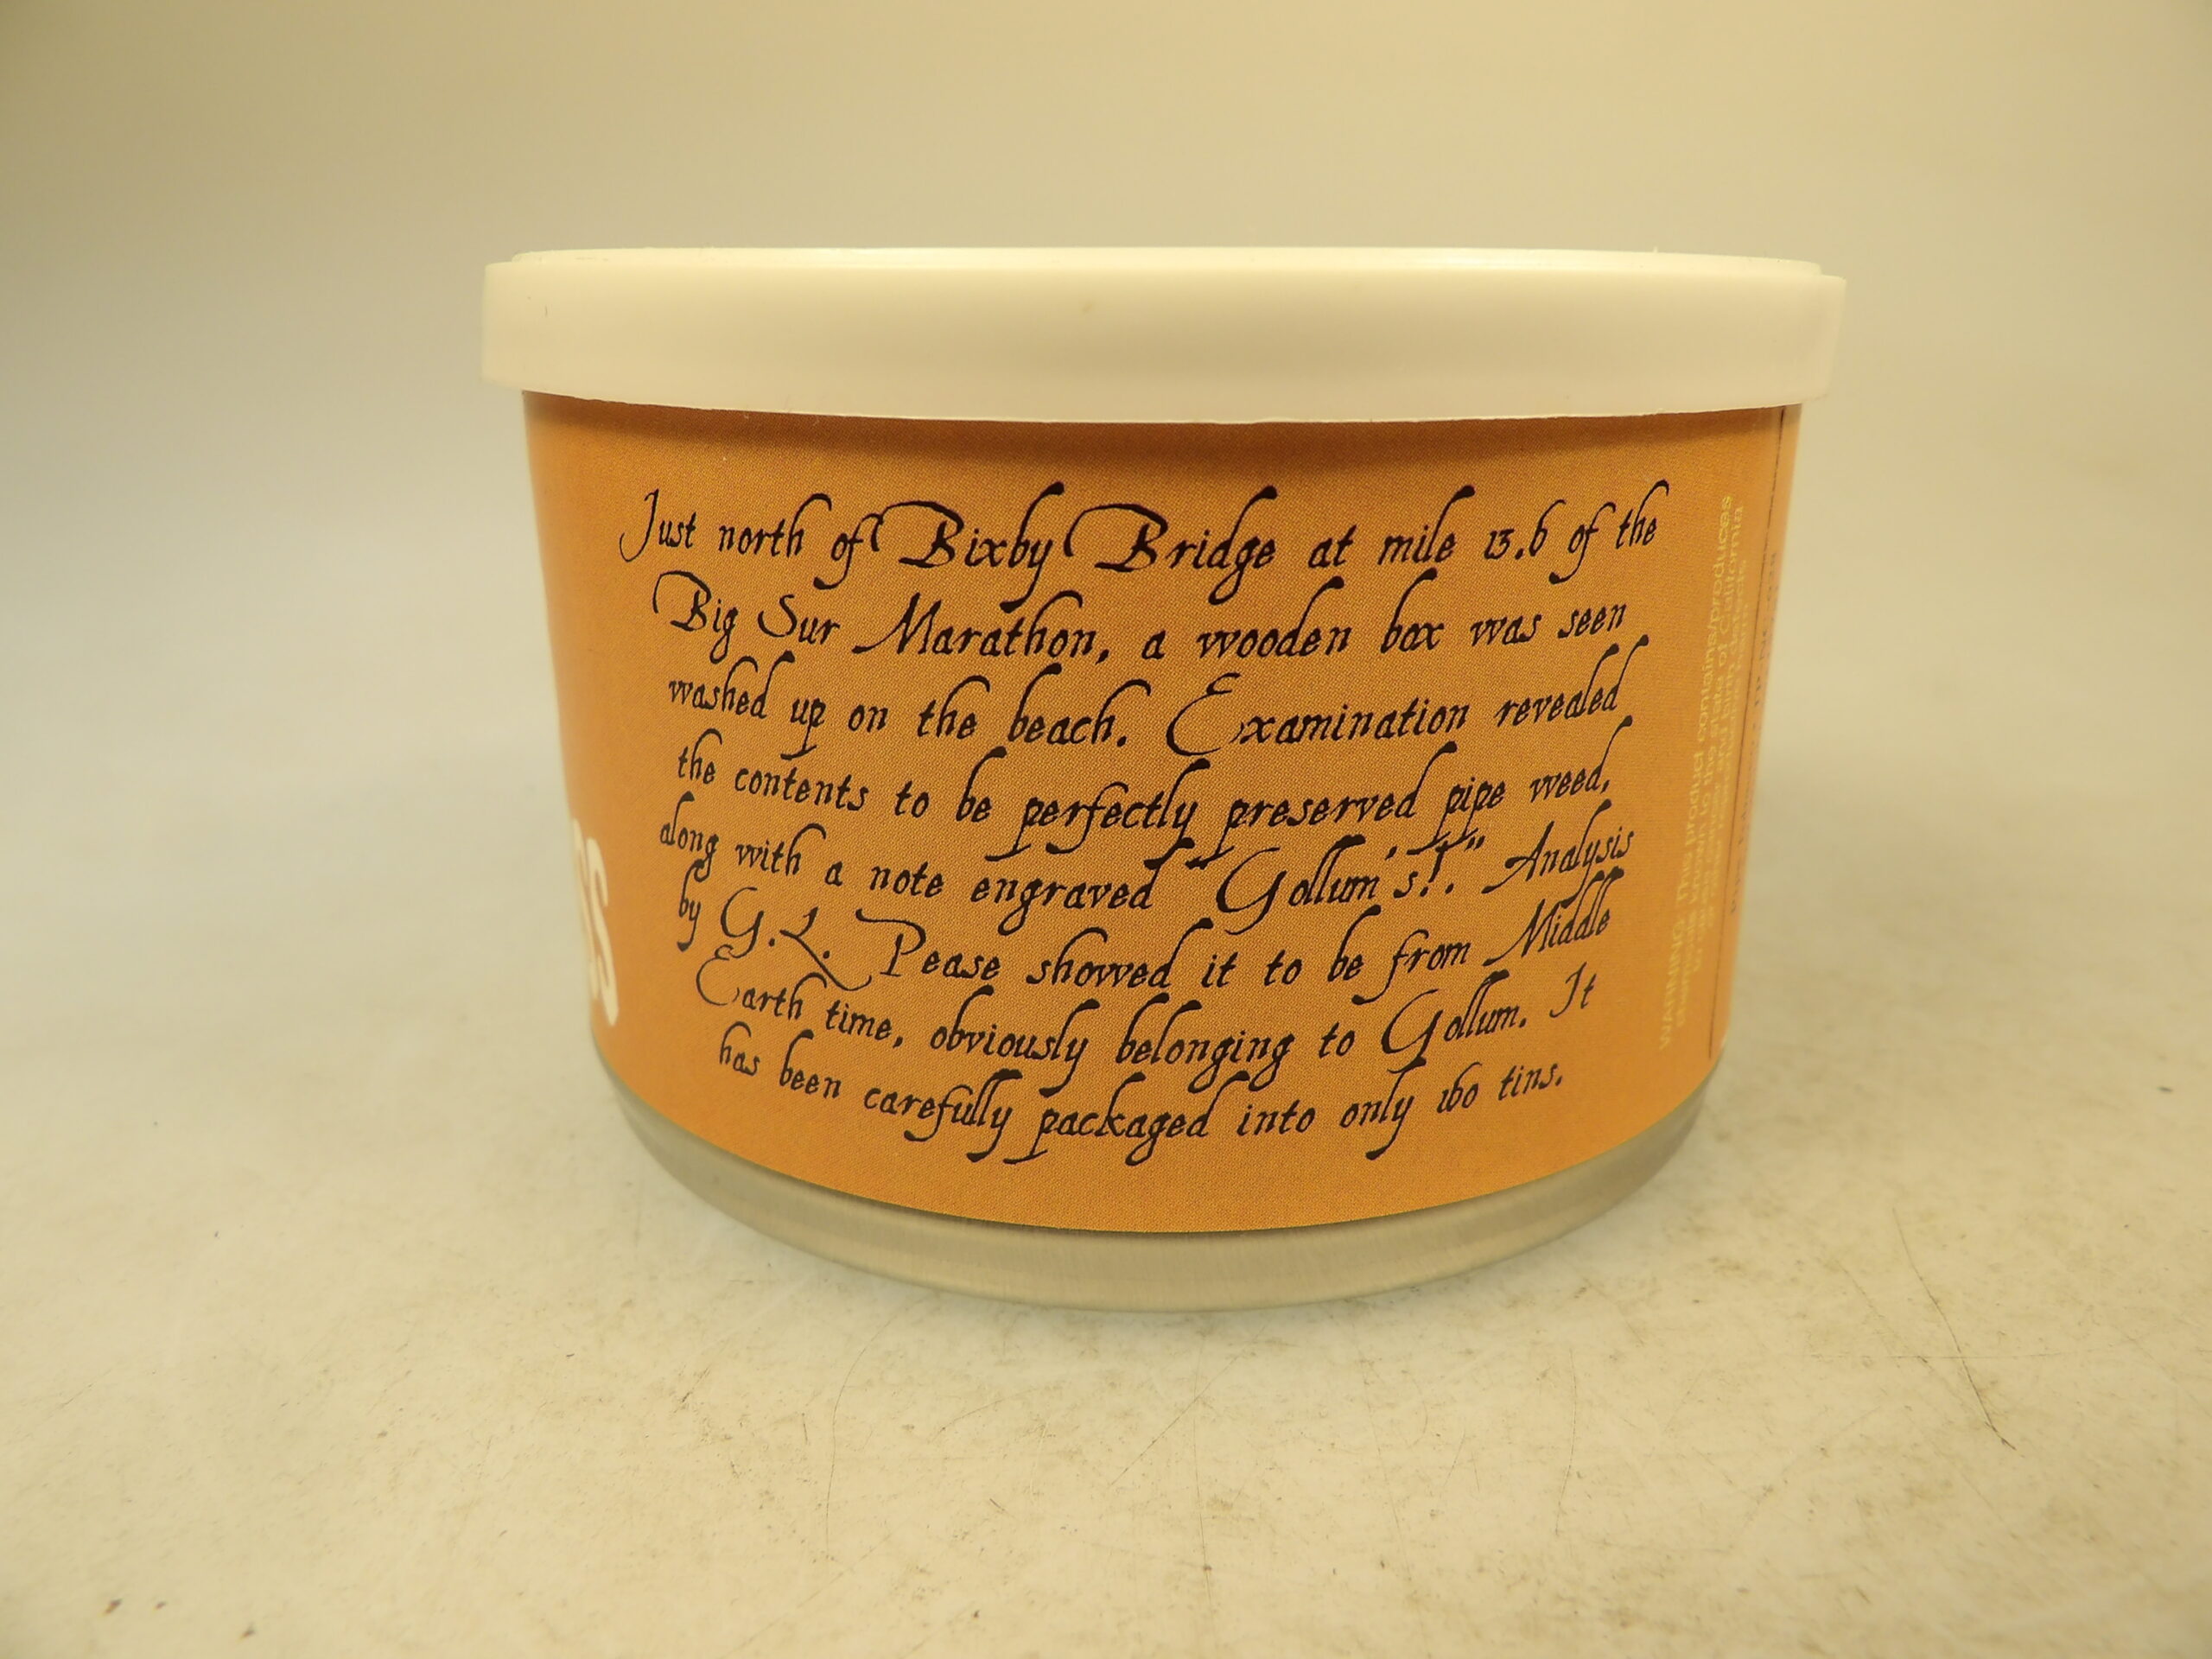 Just north of Bixby Bridge at mile 13.6 of the
Big Sur Marathon, a wooden box was seen
washed up on the beach. Examination revealed
the contents to be perfectly preserved pipe weed,
along with a note engraved "Gollum's!." Analysis
by G.L. Pease showed it to be from Middle
Earth time, obviously belonging to Gollum. It
has been carefully packaged into only 160 tins.
WARNING: This product contains/produces
known to the state of California